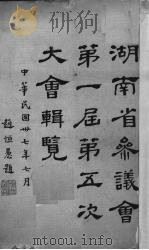 湖南省參議會
第一屆第五次
大會輯覽
中華民國卅七年七月
趙恒惖題